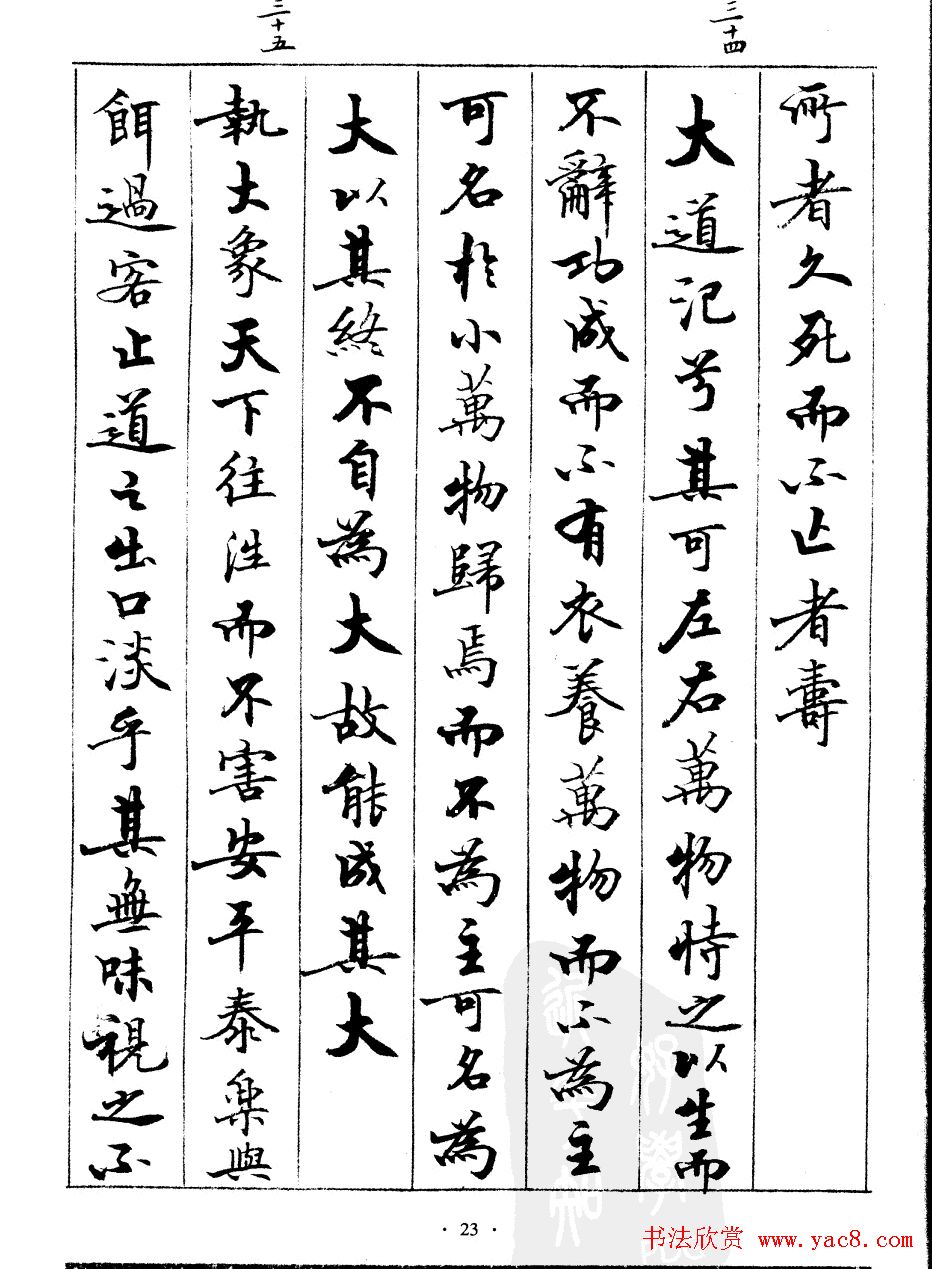 三十四
三十五
所者久死而不亡者壽
大道氾兮其可左右萬物恃之以生而
不辭功成而不有衣養萬物而不為主
可名於小萬物歸焉而不為主可名為
大以其終不自為大故能成其大
執大象天下往往而不害安平泰樂與
餌過客止道之出口淡乎其無味視之不
· 23 ·
书法欣赏 www.yac8.com